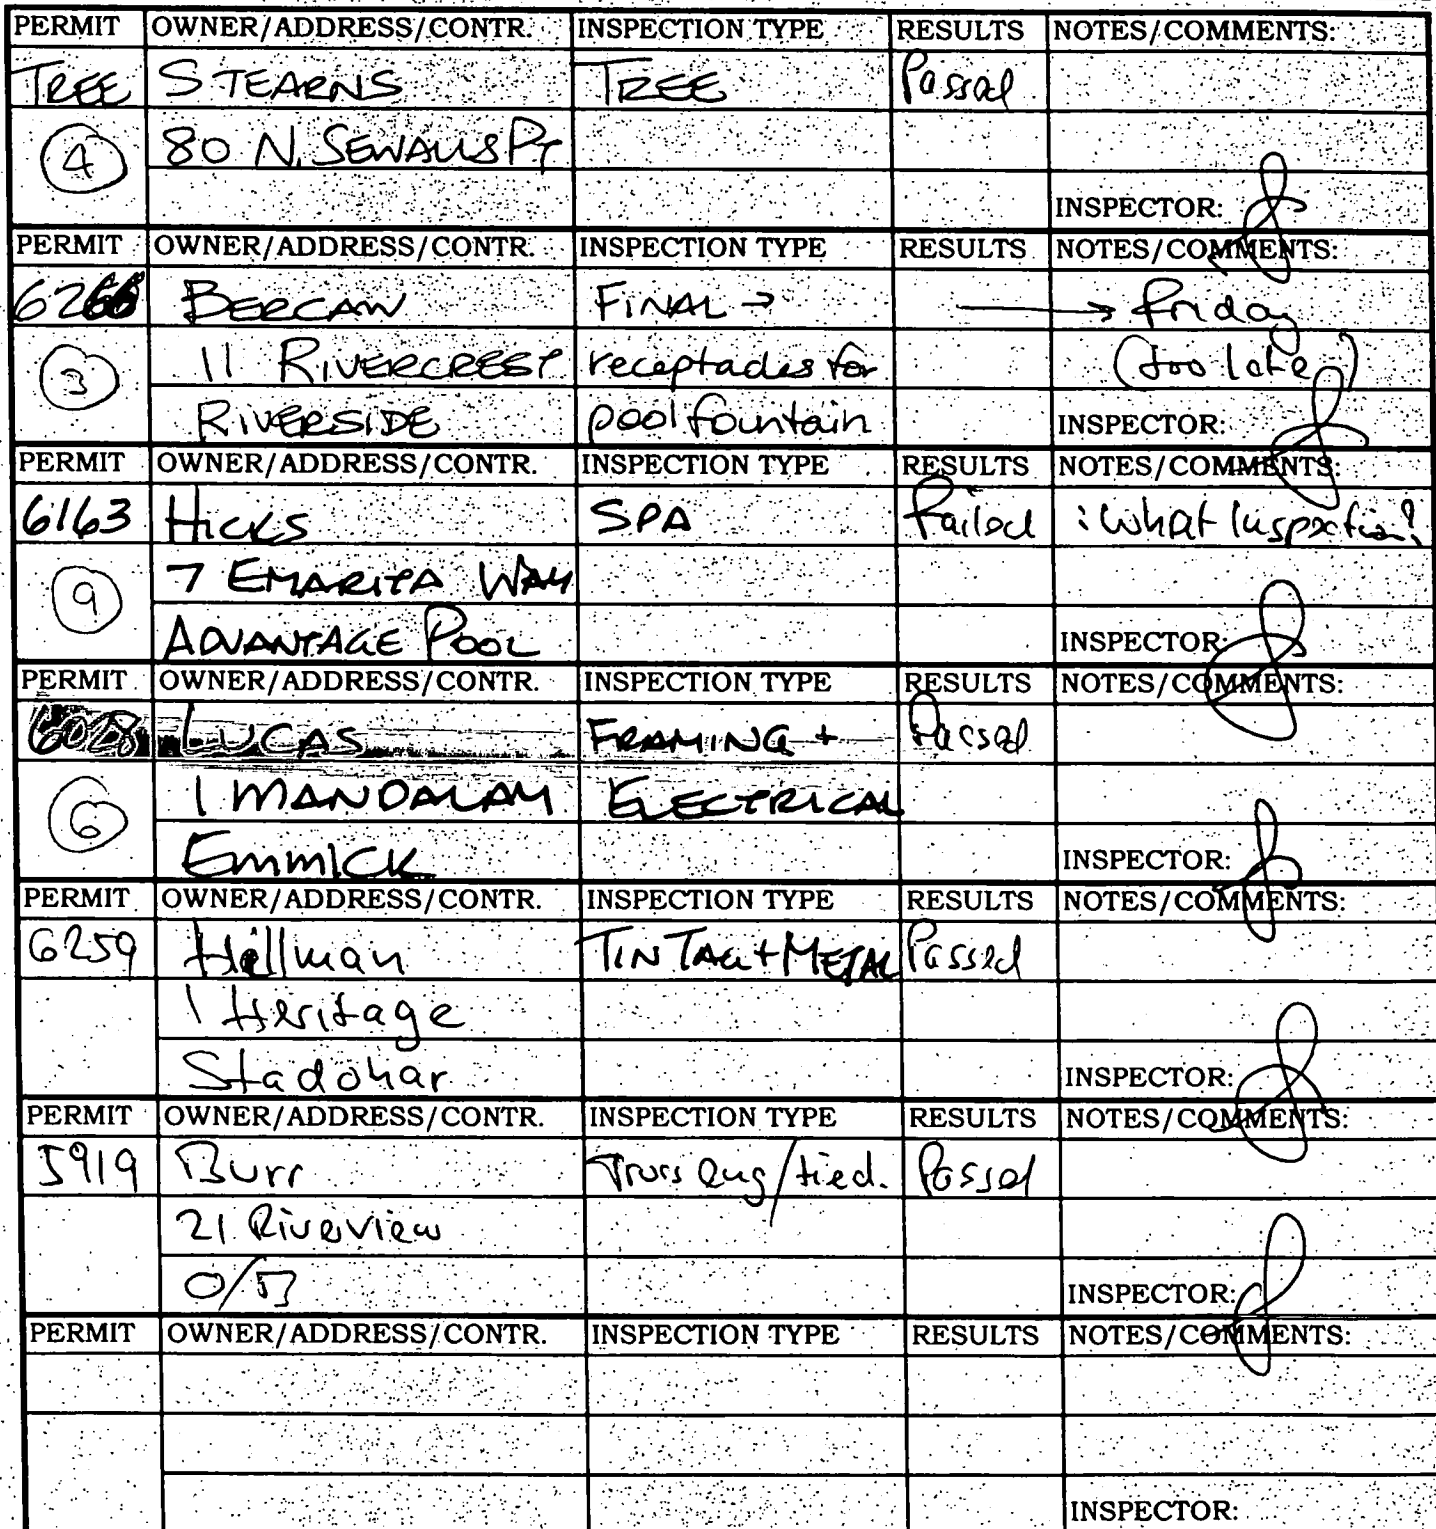 PERMIT OWNER/ADDRESS/CONTR. INSPECTION TYPE RESULTS NOTES/COMMENTS:
TREE STEARNS TREE Passed
4 80 N. SEWALLS PT
INSPECTOR:
PERMIT OWNER/ADDRESS/CONTR. INSPECTION TYPE RESULTS NOTES/COMMENTS:
BERCAW FINAL → → friday
3 11 RIVERCREST receptacles for (too late)
RIVERSIDE pool fountain INSPECTOR:
PERMIT OWNER/ADDRESS/CONTR. INSPECTION TYPE RESULTS NOTES/COMMENTS:
6163 HICKS SPA Failed : What Inspection?
9 7 EMARITA WAY
ADVANTAGE POOL INSPECTOR:
PERMIT OWNER/ADDRESS/CONTR. INSPECTION TYPE RESULTS NOTES/COMMENTS:
6028 LUCAS FRAMING + Passed
6 1 MANDALAY ELECTRICAL
EMMICK INSPECTOR:
PERMIT OWNER/ADDRESS/CONTR. INSPECTION TYPE RESULTS NOTES/COMMENTS:
6259 Hellman TIN TAG + METAL Passed
1 Heritage
Stadohar INSPECTOR:
PERMIT OWNER/ADDRESS/CONTR. INSPECTION TYPE RESULTS NOTES/COMMENTS:
5919 Burr Truss eng/tied. Passed
21 Riverview
O/B INSPECTOR:
PERMIT OWNER/ADDRESS/CONTR. INSPECTION TYPE RESULTS NOTES/COMMENTS:
INSPECTOR: